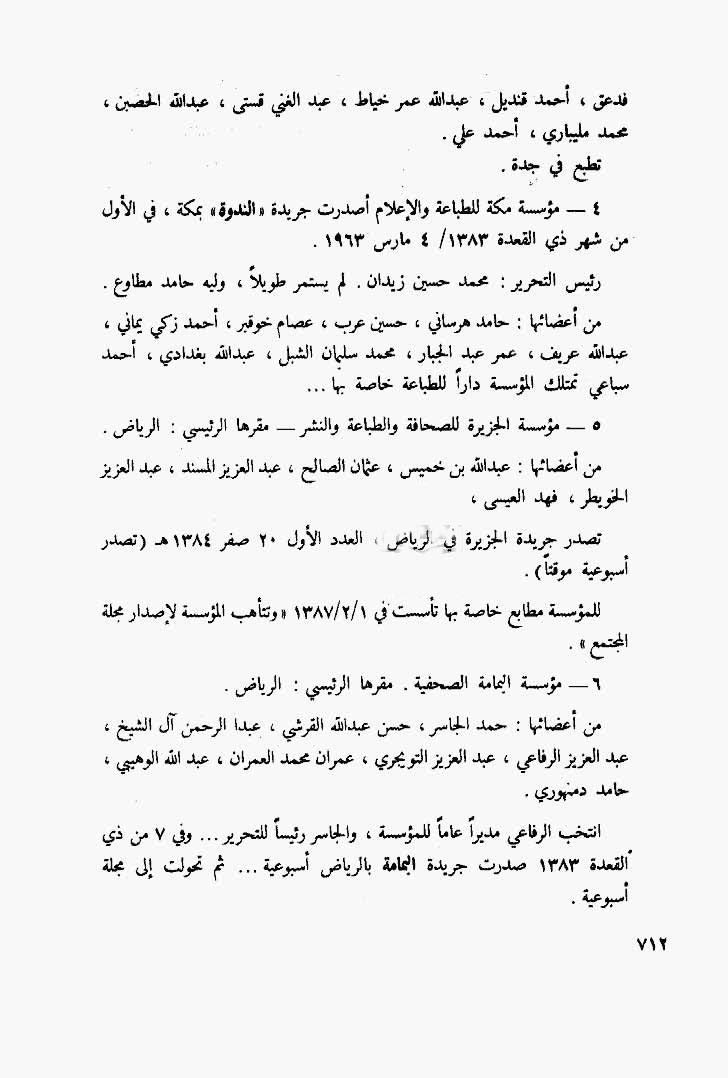 فدعق ، أحمد قنديل ، عبدالله عمر خياط ، عبد الغني قستى ، عبدالله الحصين ،
محمد مليباري ، أحمد علي .
تطبع في جدة .
٤ — مؤسسة مكة للطباعة والإعلام أصدرت جريدة «الندوة» بمكة ، في الأول
من شهر ذي القعدة ١٣٨٣/ ٤ مارس ١٩٦٣ .
رئيس التحرير : محمد حسين زيدان . لم يستمر طويلاً ، وليه حامد مطاوع .
من أعضائها : حامد هرساني ، حسين عرب ، عصام خوقير ، أحمد زكي يماني ،
عبدالله عريف ، عمر عبد الجبار ، محمد سليمان الشبل ، عبدالله بغدادي ، أحمد
سباعي تمتلك المؤسسة داراً للطباعة خاصة بها ...
٥ — مؤسسة الجزيرة للصحافة والطباعة والنشر — مقرها الرئيسي : الرياض .
من أعضائها : عبدالله بن خميس ، عثمان الصالح ، عبد العزيز المسند ، عبد العزيز
الخويطر ، فهد العيسى ،
تصدر جريدة الجزيرة في الرياض ، العدد الأول ٢٠ صفر ١٣٨٤هـ (تصدر
أسبوعية موقتاً) .
للمؤسسة مطابع خاصة بها تأسست في ١٣٨٧/٢/١ «وتتأهب المؤسسة لإصدار مجلة
المجتمع» .
٦ — مؤسسة اليمامة الصحفية . مقرها الرئيسي : الرياض .
من أعضائها : حمد الجاسر ، حسن عبدالله القرشي ، عبدا الرحمن آل الشيخ ،
عبد العزيز الرفاعي ، عبد العزيز التويجري ، عمران محمد العمران ، عبد الله الوهيبي ،
حامد دمنهوري .
انتخب الرفاعي مديراً عاماً للمؤسسة ، والجاسر رئيساً للتحرير ... وفي ٧ من ذي
القعدة ١٣٨٣ صدرت جريدة اليمامة بالرياض أسبوعية ... ثم تحولت إلى مجلة
أسبوعية .
٧١٢